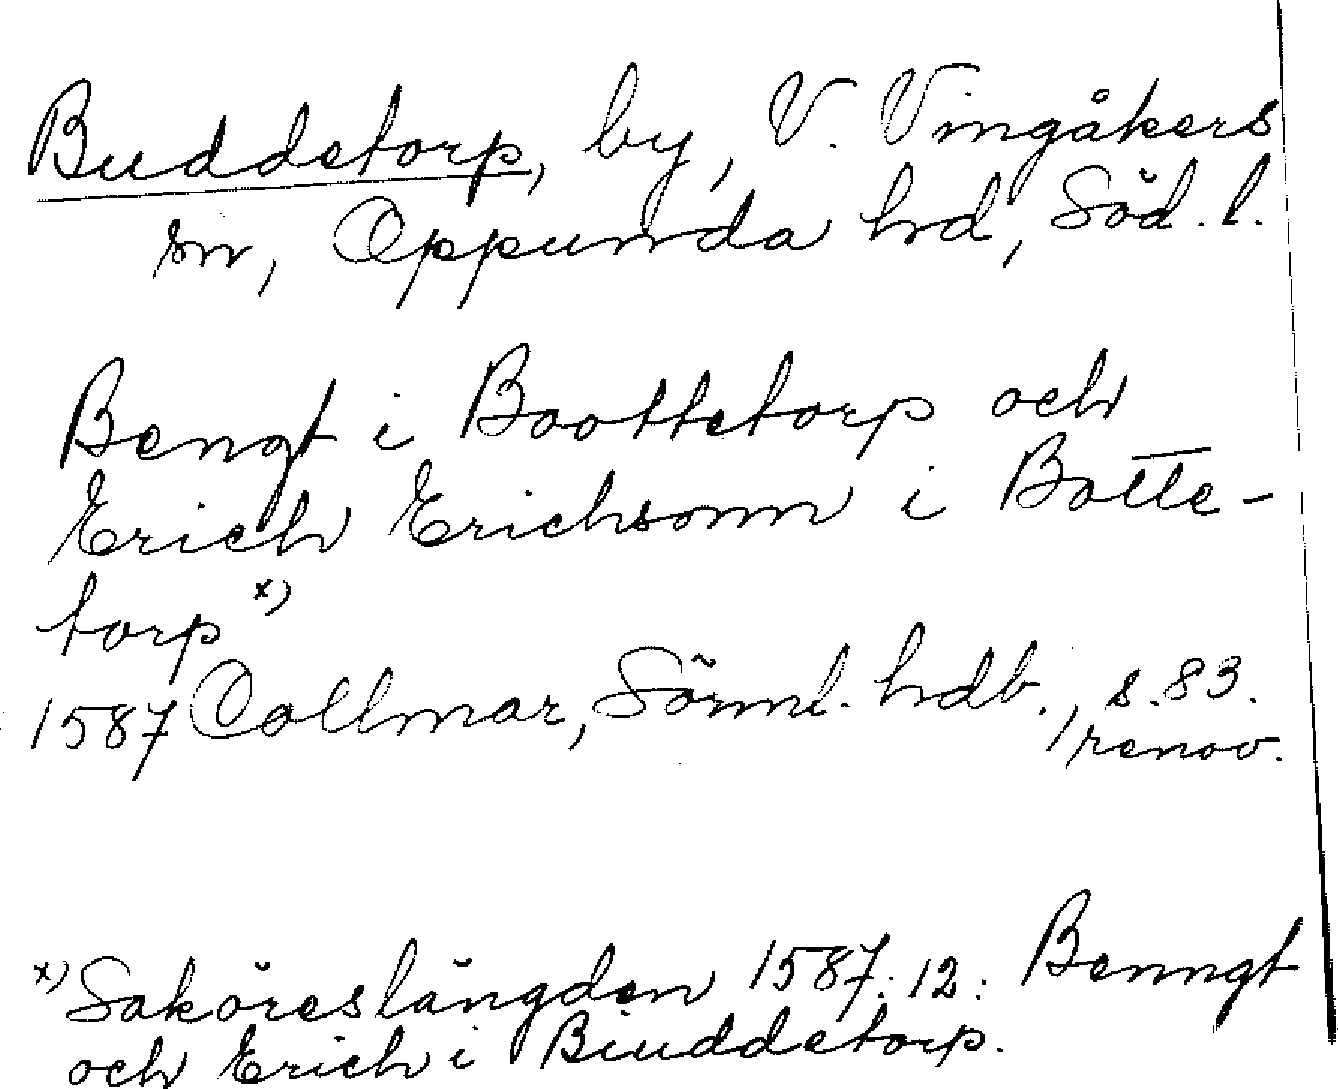 Buddetorp, by, V. Vingåkers
sn, Oppunda hd, Söd. l.
Bengt i Boottetorp och
Erich Erichsonn i Botte-
torp x)
1587 Collmar, Sörml. hdb., s. 83.
renov.
x) Saköreslängden 1587: 12: Benngt
och Erich i Biuddetorp.